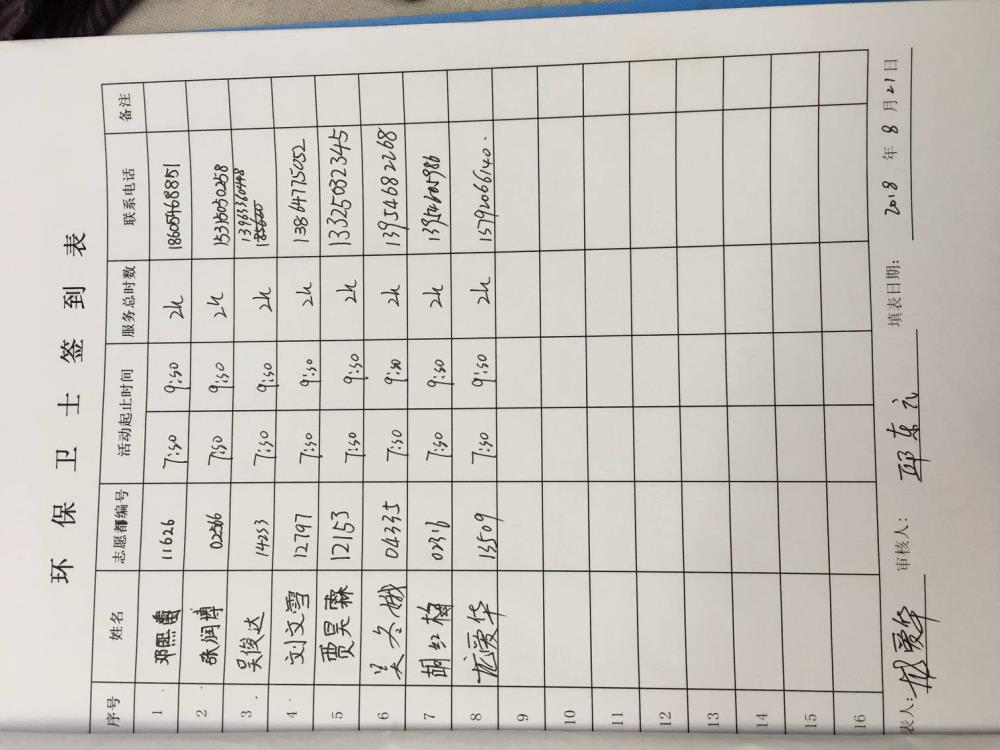 环保卫士签到表
序号 姓名 志愿者编号 活动起止时间 服务总时数 联系电话 备注
1 邓熙 11626 7:50 9:50 2h 18605468851
2 张润博 02566 7:50 9:50 2h 15315050258
3 吴俊达 14253 7:50 9:50 2h 13963360448
4 刘文雪 12797 7:50 9:50 2h 13864775052
5 贾昊霖 12153 7:50 9:50 2h 13325032345
6 吴冬娥 04335 7:50 9:50 2h 13954682268
7 胡红梅 02316 7:50 9:50 2h
8 龙爱华 13509 7:50 9:50 2h 15792066140
9
10
11
12
13
14
15
16
表人: 龙爱华 审核人: 邱东 填表日期: 2018年8月21日